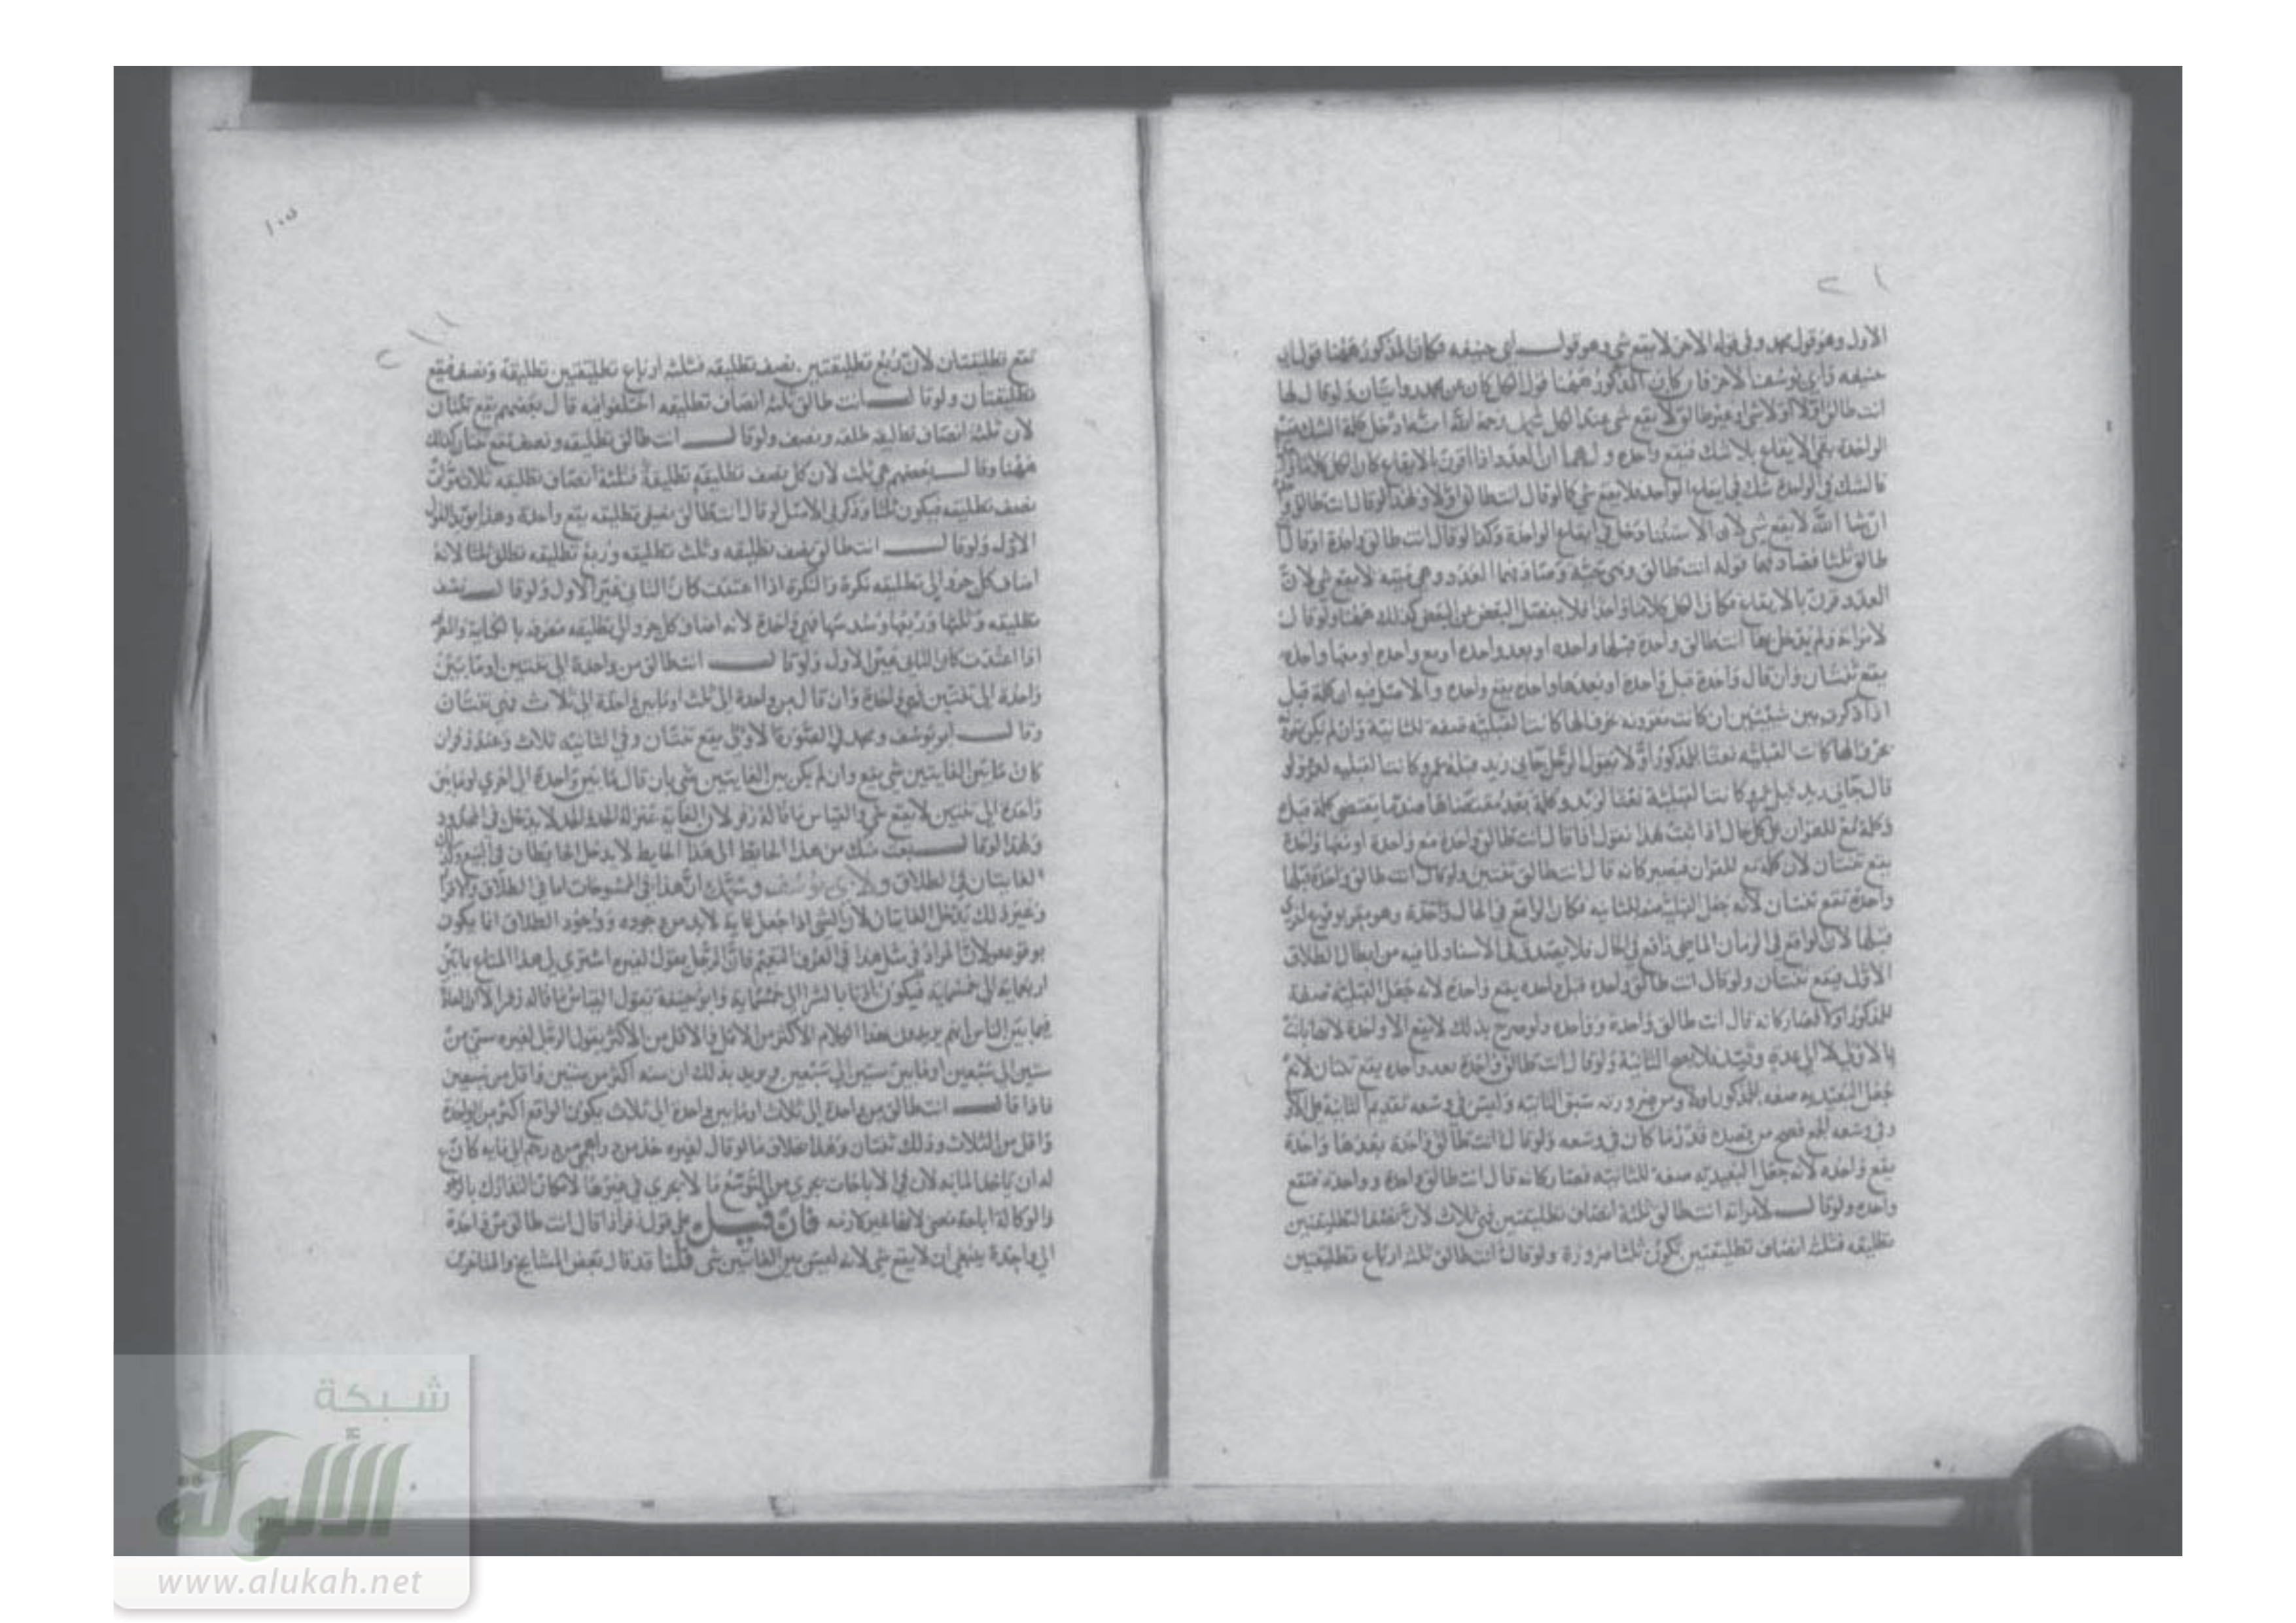 الاول وهو قول محمد وفي قوله الاخر لا يقع شي وهو قول ابي حنيفه فكان المذكور ههنا قول ابي
حنيفه وابي يوسف الاخر فان كان المذكور ههنا قول الكل كان عن محمد روايتان ولو قال لها
انت طالق اولا او لا شي او غير طالق لا يقع شي عند الكل
الواحدة بقي الايقاع بلا شك فيقع واحدة ولهما ان العدد اذا اقرن بالايقاع كان الكل كلاما
فالشك في الواحدة شك في ايقاع الواحدة فلا يقع شي كما لو قال انت طالق اولا ولهذا لو قال انت طالق
ان شا الله لا يقع شي لان الاستثنا دخل في ايقاع الواحدة وكذا لو قال انت طالق واحدة او قال
طالق ثلثا فصادفها قوله انت طالق وهي حية وصادفها العدد وهي ميتة لا يقع شي لان
العدد قرن بالايقاع فكان الكل كلاما واحدا فلا ينفصل البعض عن البعض كذلك ههنا ولو قال
لامراة ولم يدخل بها انت طالق واحدة قبلها واحدة او بعد واحدة او مع واحدة او معها واحدة
يقع ثنتان وان قال واحدة قبل واحدة او بعدها واحدة يقع واحدة والاصل فيه ان كلمة قبل
اذا ذكرت بين شيئين ان كانت مقرونة بحرف الها كانت القبلية صفة للثانية وان لم يكن
بحرف الها كانت القبلية نعتا للمذكور اولا يقول الرجل جاني زيد قبله عمرو كانت القبلية لعمرو ولو
قال جاني زيد قبل عمرو كانت القبلية نعتا لزيد وكلمة بعد مقتضاها ضد ما يقتضي كلمة قبل
وكلمة مع للقران على كل حال اذا ثبت هذا نقول اذا قال انت طالق واحدة مع واحدة او معها واحدة
يقع ثنتان لان كلمة مع للقران فيصير كانه قال انت طالق ثنتين ولو قال انت طالق واحدة قبلها
واحدة تقع ثنتان لانه جعل القبلية صفة للثانية فكان الواقع في الحال واحدة وهو يقر بوقوع اخرى
قبلها لان الواقع في الزمان الماضي واقع في الحال فلا يصدق في الاسناد لما فيه من ابطال الطلاق
الاول فيقع ثنتان ولو قال انت طالق واحدة قبل واحدة يقع واحدة لانه جعل القبلية صفة
للمذكور اولا فصار كانه قال انت طالق واحدة وواحدة ولو صرح بذلك لا يقع الا واحدة لانها بانت
بالاولى لا الى عدة فلا يصح الثانية ولو قال انت طالق واحدة بعد واحدة يقع ثنتان لانه
جعل البعدية صفة للمذكور اولا ومن ضرورته سبق الثانية وليس في وسعه تقديم الثانية على
وفي وسعه الجمع فصح من قصده قدر ما كان في وسعه ولو قال انت طالق واحدة بعدها واحدة
يقع واحدة لانه جعل البعدية صفة للثانية فصار كانه قال انت طالق واحدة وواحدة فيقع
واحدة ولو قال لامراته انت طالق ثلثة انصاف تطليقتين فهي ثلاث لان نصف التطليقتين
تطليقه فثلث انصاف تطليقتين تكون ثلثا ضرورة ولو قال انت طالق ثلث ارباع تطليقتين
تقع تطليقتان لان ربع تطليقتين نصف تطليقه فثلثه ارباع تطليقتين تطليقة ونصف فيقع
تطليقتان ولو قال انت طالق ثلثه انصاف تطليقه اختلفوا فيه قال بعضهم يقع ثنتان
لان ثلثة انصاف تطليقه طلقه ونصف ولو قال انت طالق تطليقه ونصف يقع ثنتان كذلك
ههنا وقال بعضهم هي ثلث لان كل نصف تطليقه تطليقة فثلثة انصاف تطليقه ثلاث مرات
نصف تطليقه فيكون ثلثا وذكر في الاصل لو قال انت طالق نصفي تطليقه يقع واحدة وهذا يؤيد القول
الاول ولو قال انت طالق نصف تطليقه وثلث تطليقه وربع تطليقه تطلق ثلثا لانه
اضاف كل جزو الى تطليقه نكرة والنكرة اذا اعتقبت كان الثاني غير الاول ولو قال نصف
تطليقه وثلثها وربعها وسدسها فهي واحدة لانه اضاف كل جزو الى تطليقه معرفه بالكناية
اذا اعتقبت كان الثاني عين الاول ولو قال انت طالق من واحدة الى ثنتين او ما بين
واحدة الى ثنتين فهي واحدة وان قال من واحدة الى ثلث او ما بين واحدة الى ثلاث فهي ثنتان
وقال ابو يوسف ومحمد في الصورة الاولى يقع ثنتان وفي الثانيه ثلاث وعند زفر ان
كان ما بين الغايتين شي يقع وان لم يكن بين الغايتين شي بان قال ما بين واحدة الى اخرى او ما بين
واحدة الى ثنتين لا يقع شي والقياس ما قاله زفر لان الغاية بمنزلة الحد والحد لا يدخل في المحدود
ولهذا لو قال بعت منك من هذا الحايط الى هذا الحايط لا يدخل الحايطان في البيع
الغايتان في الطلاق ولابي يوسف ومحمد ان هذا في المسوحات اما في الطلاق والاقرار
وغير ذلك تدخل الغايتان لان الشي اذا جعل غاية لا بد من وجوده ووجود الطلاق انما يكون
بوقوعه ولان المراد في مثل هذا في العرف التعميم فان الرجل يقول لغيره اشتري لي هذا المتاع ما بين
اربعماية الى خمسماية فيكون اذنا بالشرا الى خمسماية وابو حنيفة يقول القياس ما قاله زفر الا ان العادة
فيما بين الناس انهم يريدون بهذا الكلام الاكثر من الاقل والاقل من الاكثر يقول الرجل لغيره سني من
ستين الى سبعين او ما بين ستين الى سبعين ويريد بذلك ان سنه اكثر من ستين واقل من سبعين
فاذا قال انت طالق من واحدة الى ثلاث او ما بين واحدة الى ثلاث يكون الواقع اكثر من الواحدة
واقل من الثلاث وذلك ثنتان وهذا بخلاف ما لو قال لغيره خذ من دراهمي من درهم الى مايه كان
له ان ياخذ المايه لان في الاباحات يجري من التوسع ما لا يجري في غيرها لامكان التدارك بالرجوع
والوكالة اباحة معنى لانها غير لازمه فان قيل على قول زفر اذا قال انت طالق من واحدة
الى واحدة ينبغي ان لا يقع شي لانه ليس بين الغايتين شي قلنا قد قال بعض المشايخ والمتاخرين
شبكة
الألوكة
www.alukah.net